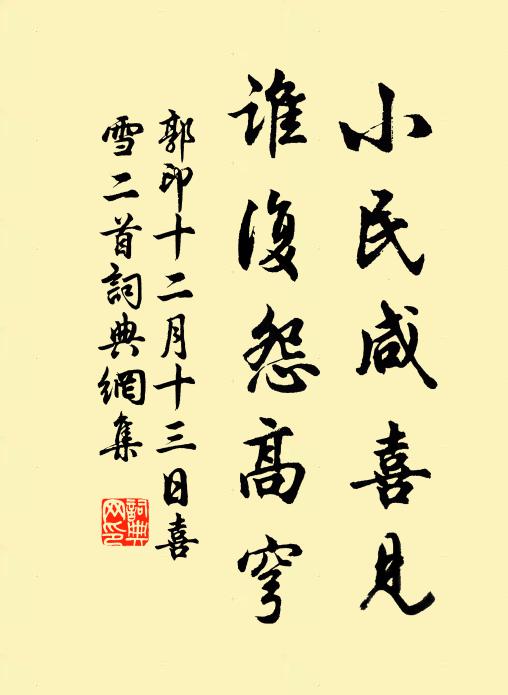 小民咸喜見
誰復怨高穹
郭印十二月十三日喜
雪二首詞典網集
詞典
网印